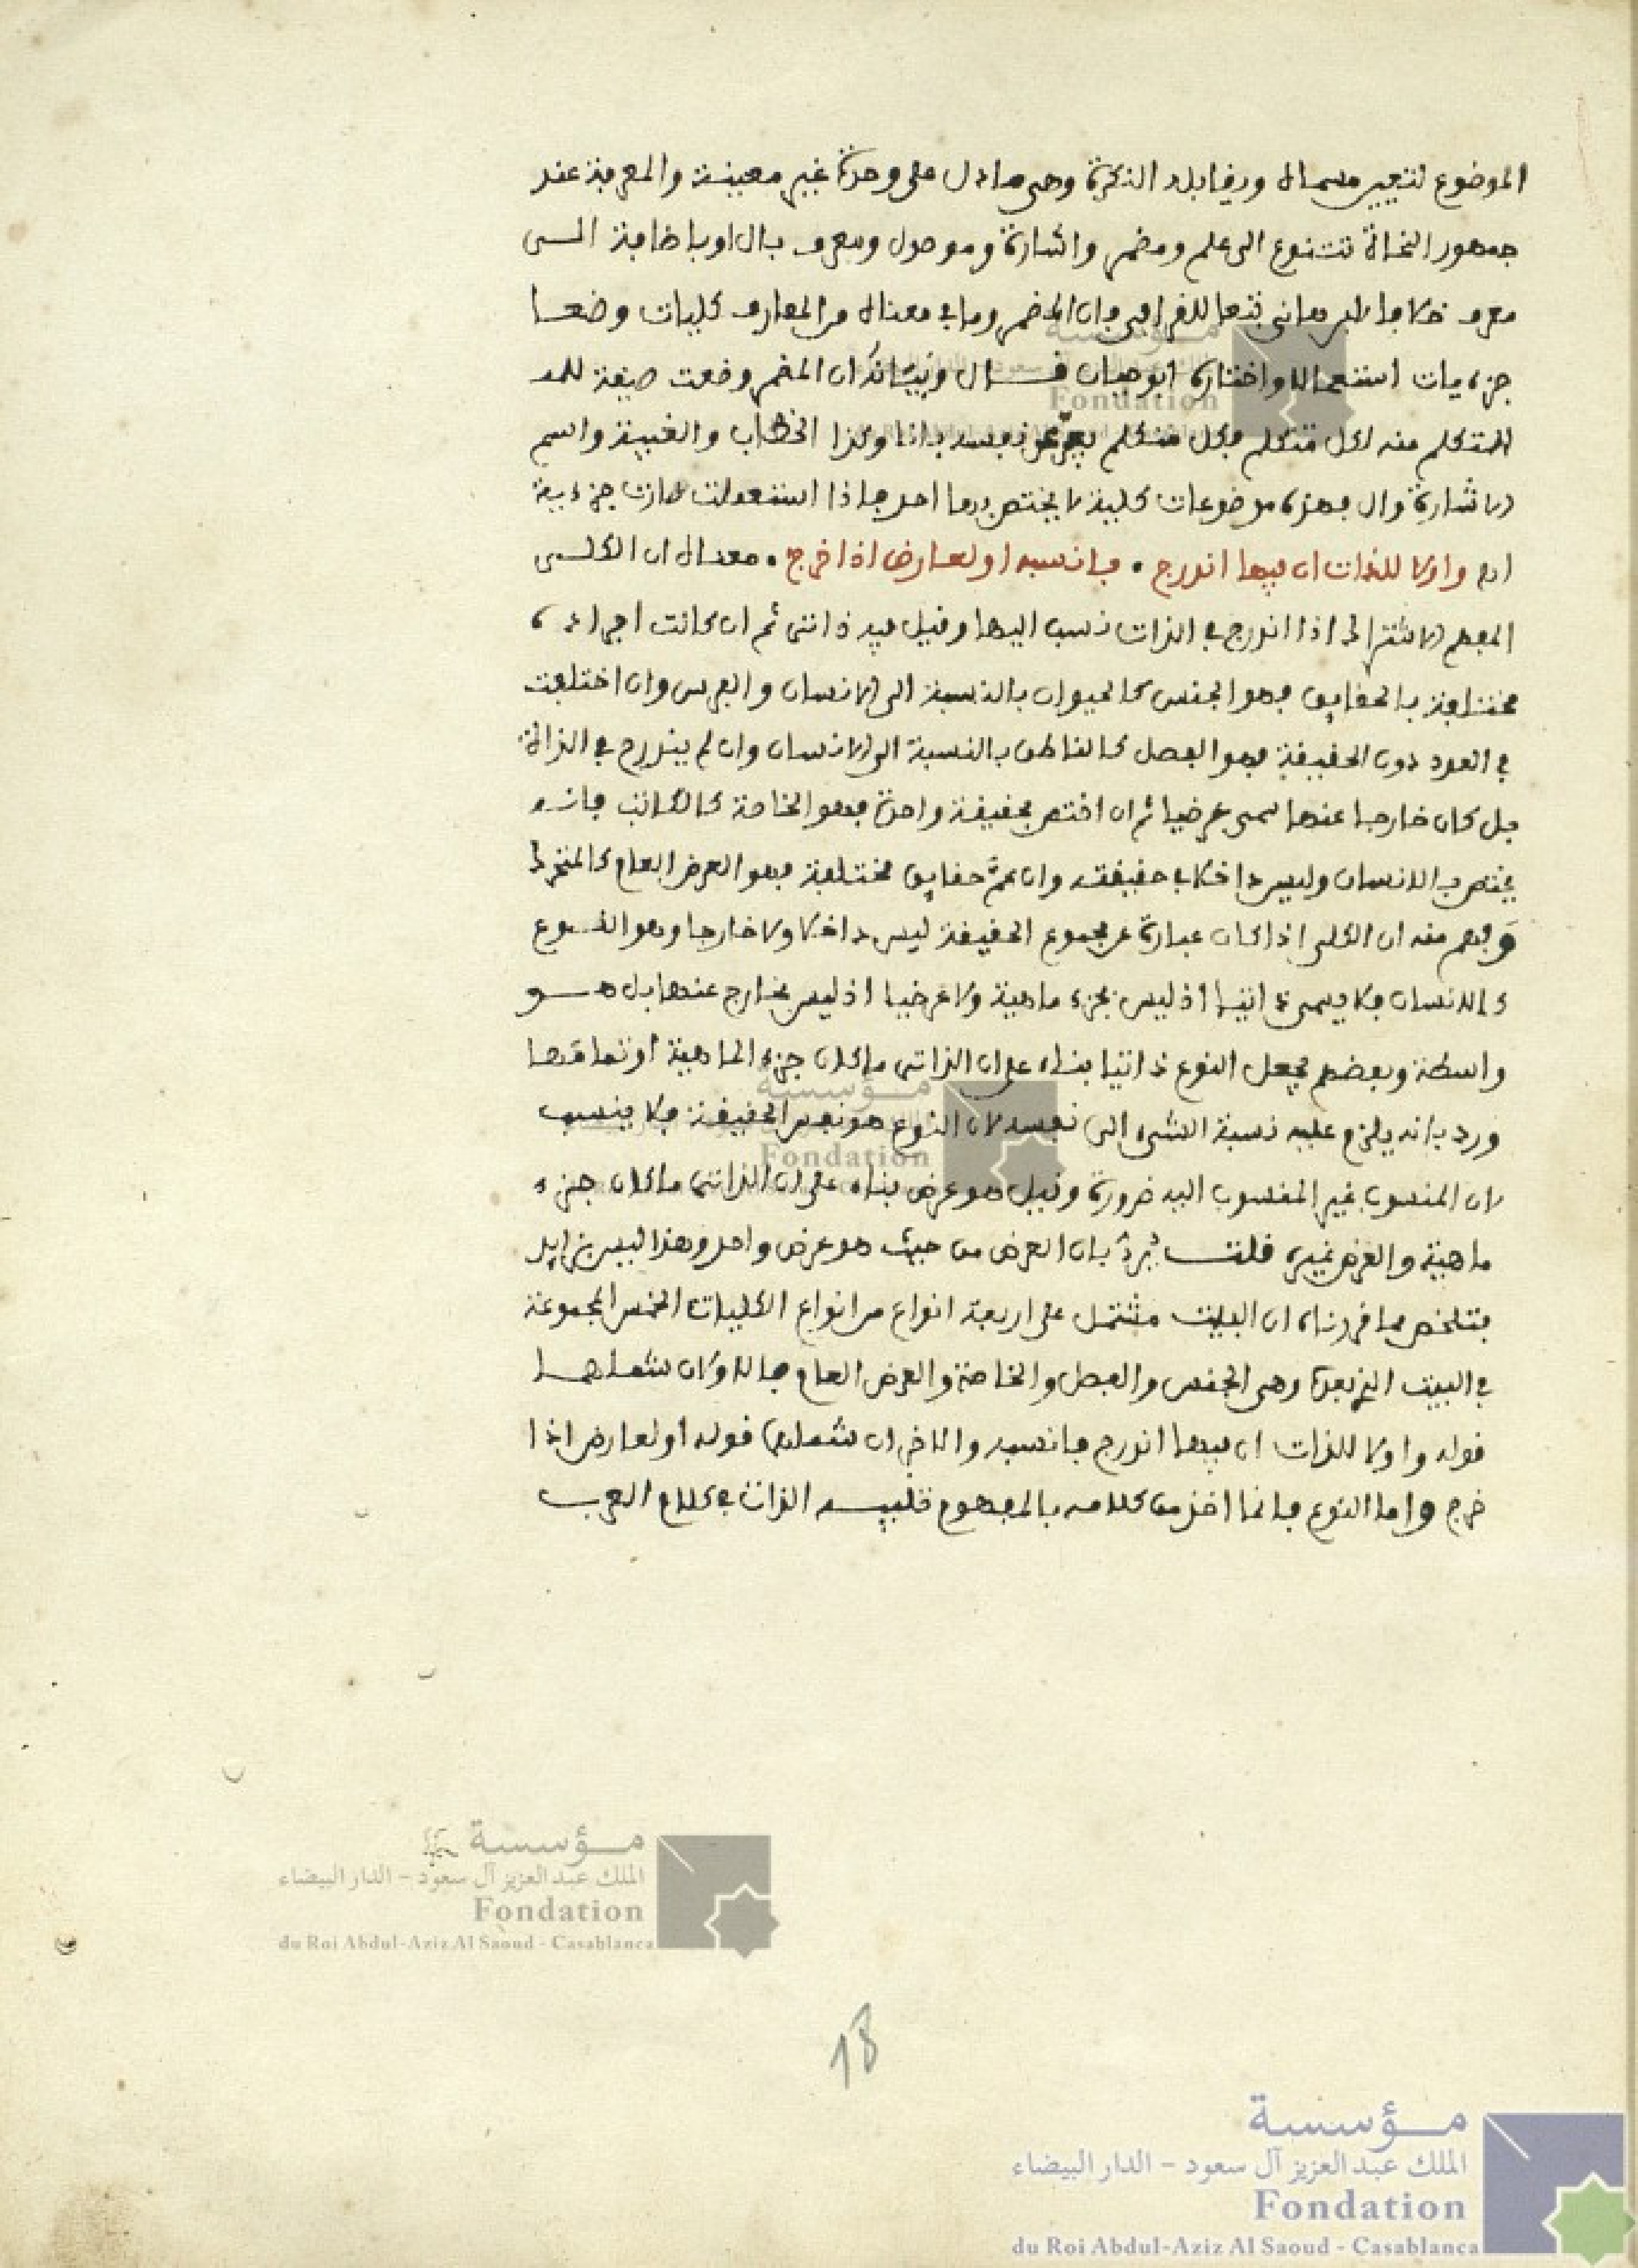 الموضوع لتعيين مسماه ويقابله النكرة وهى ما دل على وحدة غير معينة والمعرفة عند
جمهور النحاة تتنوع الى علم ومضمر واشارة وموصول ومعرف بال او باضافة الى
معرف خلافا القرافى فان المضمر وما فى معناه من المعارف كليات وضعا
جزءيات استعمالا واختاره ابو حيان قال وبيانه ان المضمر وضعت صيغة
للمتكلم منه لكل متكلم فكل متكلم يعبر عن نفسه بانا وكذا الخطاب والغيبة واسم
الاشارة وال فهذه موضوعات كلية لا يختص بها احد فاذا استعملت صارت جزءية
اه واولا للذات ان فيها اندرج . فانسبه او لعارض اذا خرج . معناه ان الكلى
المفهم الاشتراك اذا اندرج فى الذات نسب اليها وقيل فيه ذاتى ثم ان كانت اجزاءه
مختلفة بالحقايق فهو الجنس كالحيوان بالنسبة الى الانسان والفرس وان اختلفت
فى العدد دون الحقيقة فهو الفصل كالناطق بالنسبة الى الانسان وان لم يندرج فى الذات
بل كان خارجا عنها سمى عرضيا ثم ان اختص بحقيقة واحدة فهو الخاصة كالكاتب فانه
يختص بالانسان وليس داخلا فى حقيقته وان عم حقايق مختلفة فهو العرض العام كالمتحرك
وفهم منه ان الكلى اذا كان عبارة عن مجموع الحقيقة ليس داخلا ولا خارجا وهو النوع
كالانسان فلا يسمى ذاتيا اذ ليس بجزء ماهية ولا عرضيا اذ ليس بخارج عنها بل هو
واسطة وبعضهم يجعل النوع ذاتيا بناء على ان الذاتى ما كان جزء الماهية او تمامها
ورد بانه يلزم عليه نسبة الشىء الى نفسه لان النوع هو نفس الحقيقة فلا ينسب
لان المنسوب غير المنسوب اليه ضرورة وقيل هو عرض بناء على ان الذاتى ما كان جزء
ماهية والعرض غيره قلت يرد بان العرض من حيث هو عرض واحد وهذا ليس بزايد
فتلخص مما قررناه ان البيت مشتمل على اربعة انواع من انواع الكليات الخمس المجموعة
فى البيت الذى بعده وهى الجنس والفصل والخاصة والعرض العام فالاولان شملهما
قوله واولا للذات ان فيها اندرج فانسبه والاخران شملهما قوله او لعارض اذا
خرج واما النوع فانما اخذ من كلامه بالمفهوم تنبيه الذات فى كلام العرب
مؤسسة
الملك عبد العزيز آل سعود - الدار البيضاء
Fondation
du Roi Abdul-Aziz Al Saoud - Casablanca
18
مؤسسة
الملك عبد العزيز آل سعود - الدار البيضاء
Fondation
du Roi Abdul-Aziz Al Saoud - Casablanca